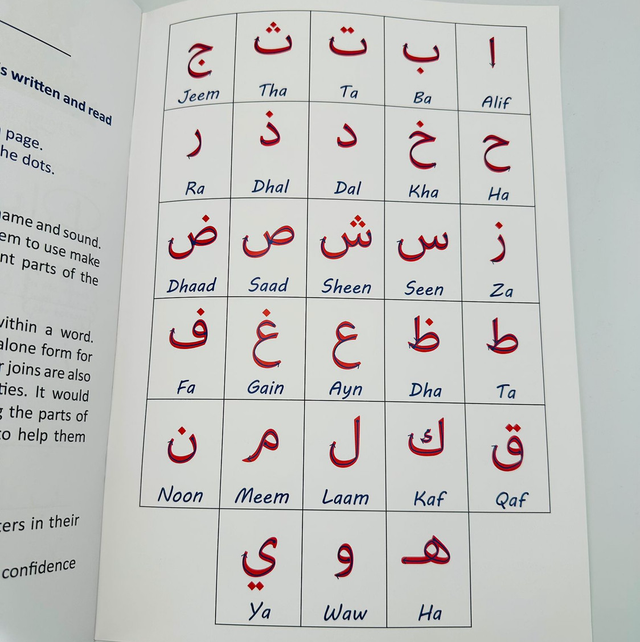 written and read
page.
dots.
and sound.
to use make
parts of the
within a word.
alone form for
joins are also
It would
the parts of
to help them
in their
confidence
ا ب ت ث ج
Alif Ba Ta Tha Jeem
ح خ د ذ ر
Ha Kha Dal Dhal Ra
ز س ش ص ض
Za Seen Sheen Saad Dhaad
ط ظ ع غ ف
Ta Dha Ayn Gain Fa
ق ك ل م ن
Qaf Kaf Laam Meem Noon
هـ و ي
Ha Waw Ya